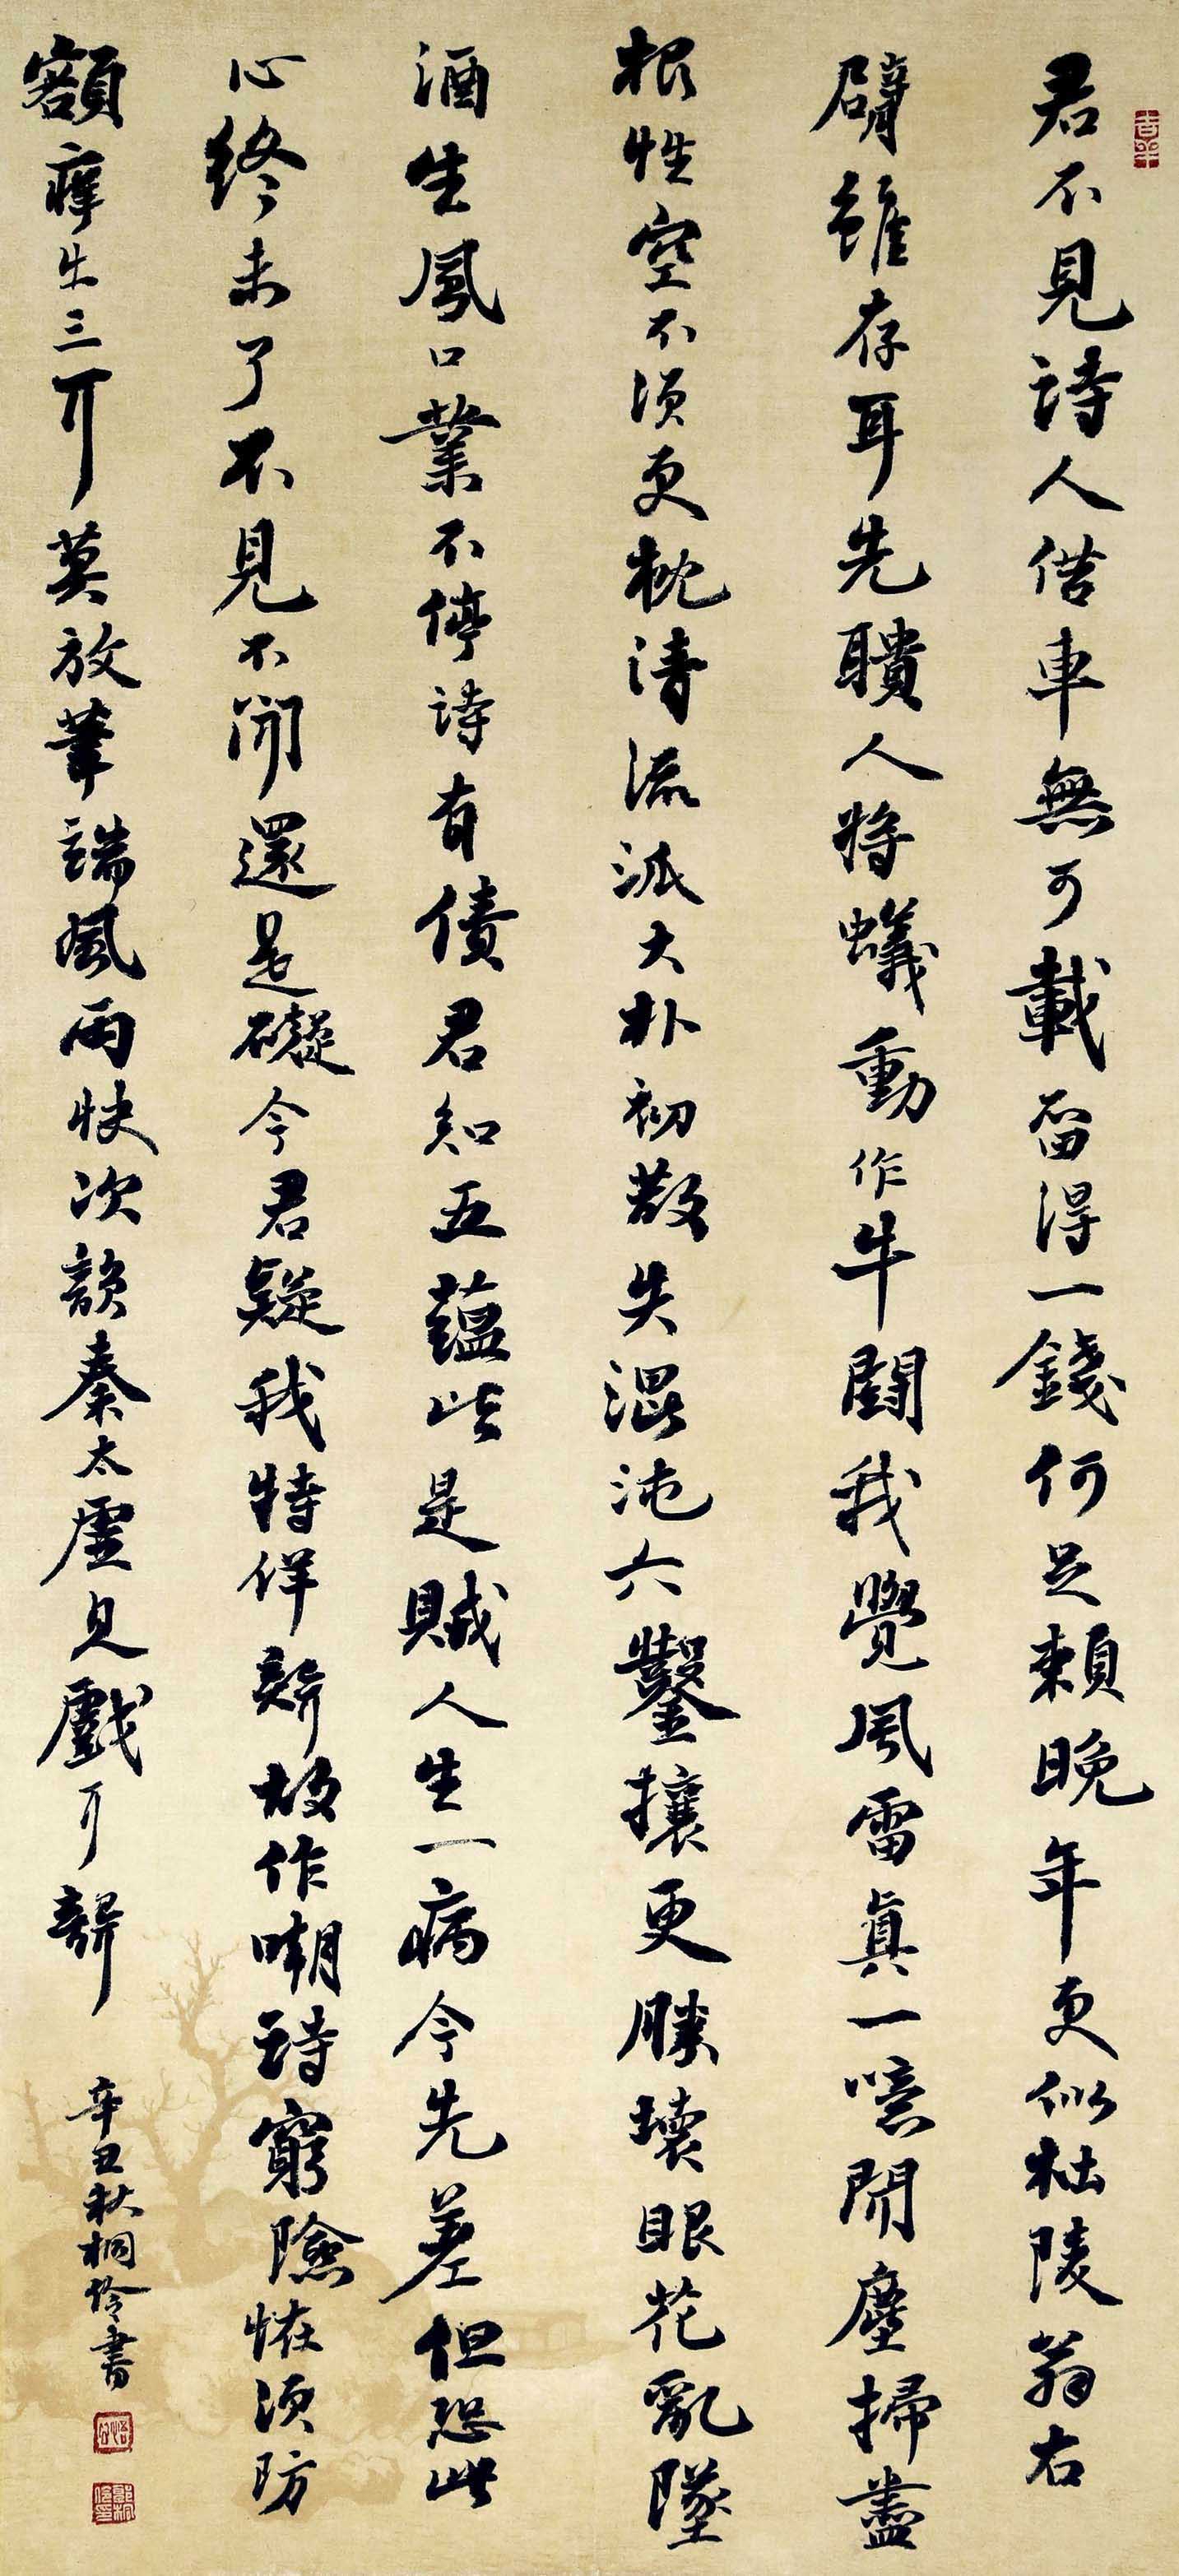 君不見詩人借車無可載留得一錢何足賴晚年更似杜陵翁右
臂雖存耳先聵人將蟻動作牛鬪我覺風雷真一噫聞塵掃盡
根性空不須更枕清流派大朴初散失混沌六鑿攘更勝壞眼花亂墜
酒生風口業不停詩有債君知五蘊皆是賊人生一病今先差但恐此
心終未了不見不聞還是礙今君疑我特佯聾故作嘲詩窮險怪須防
額癢出三耳莫放筆端風雨快次韻秦太虛見戲耳聾
辛丑秋桐伶書